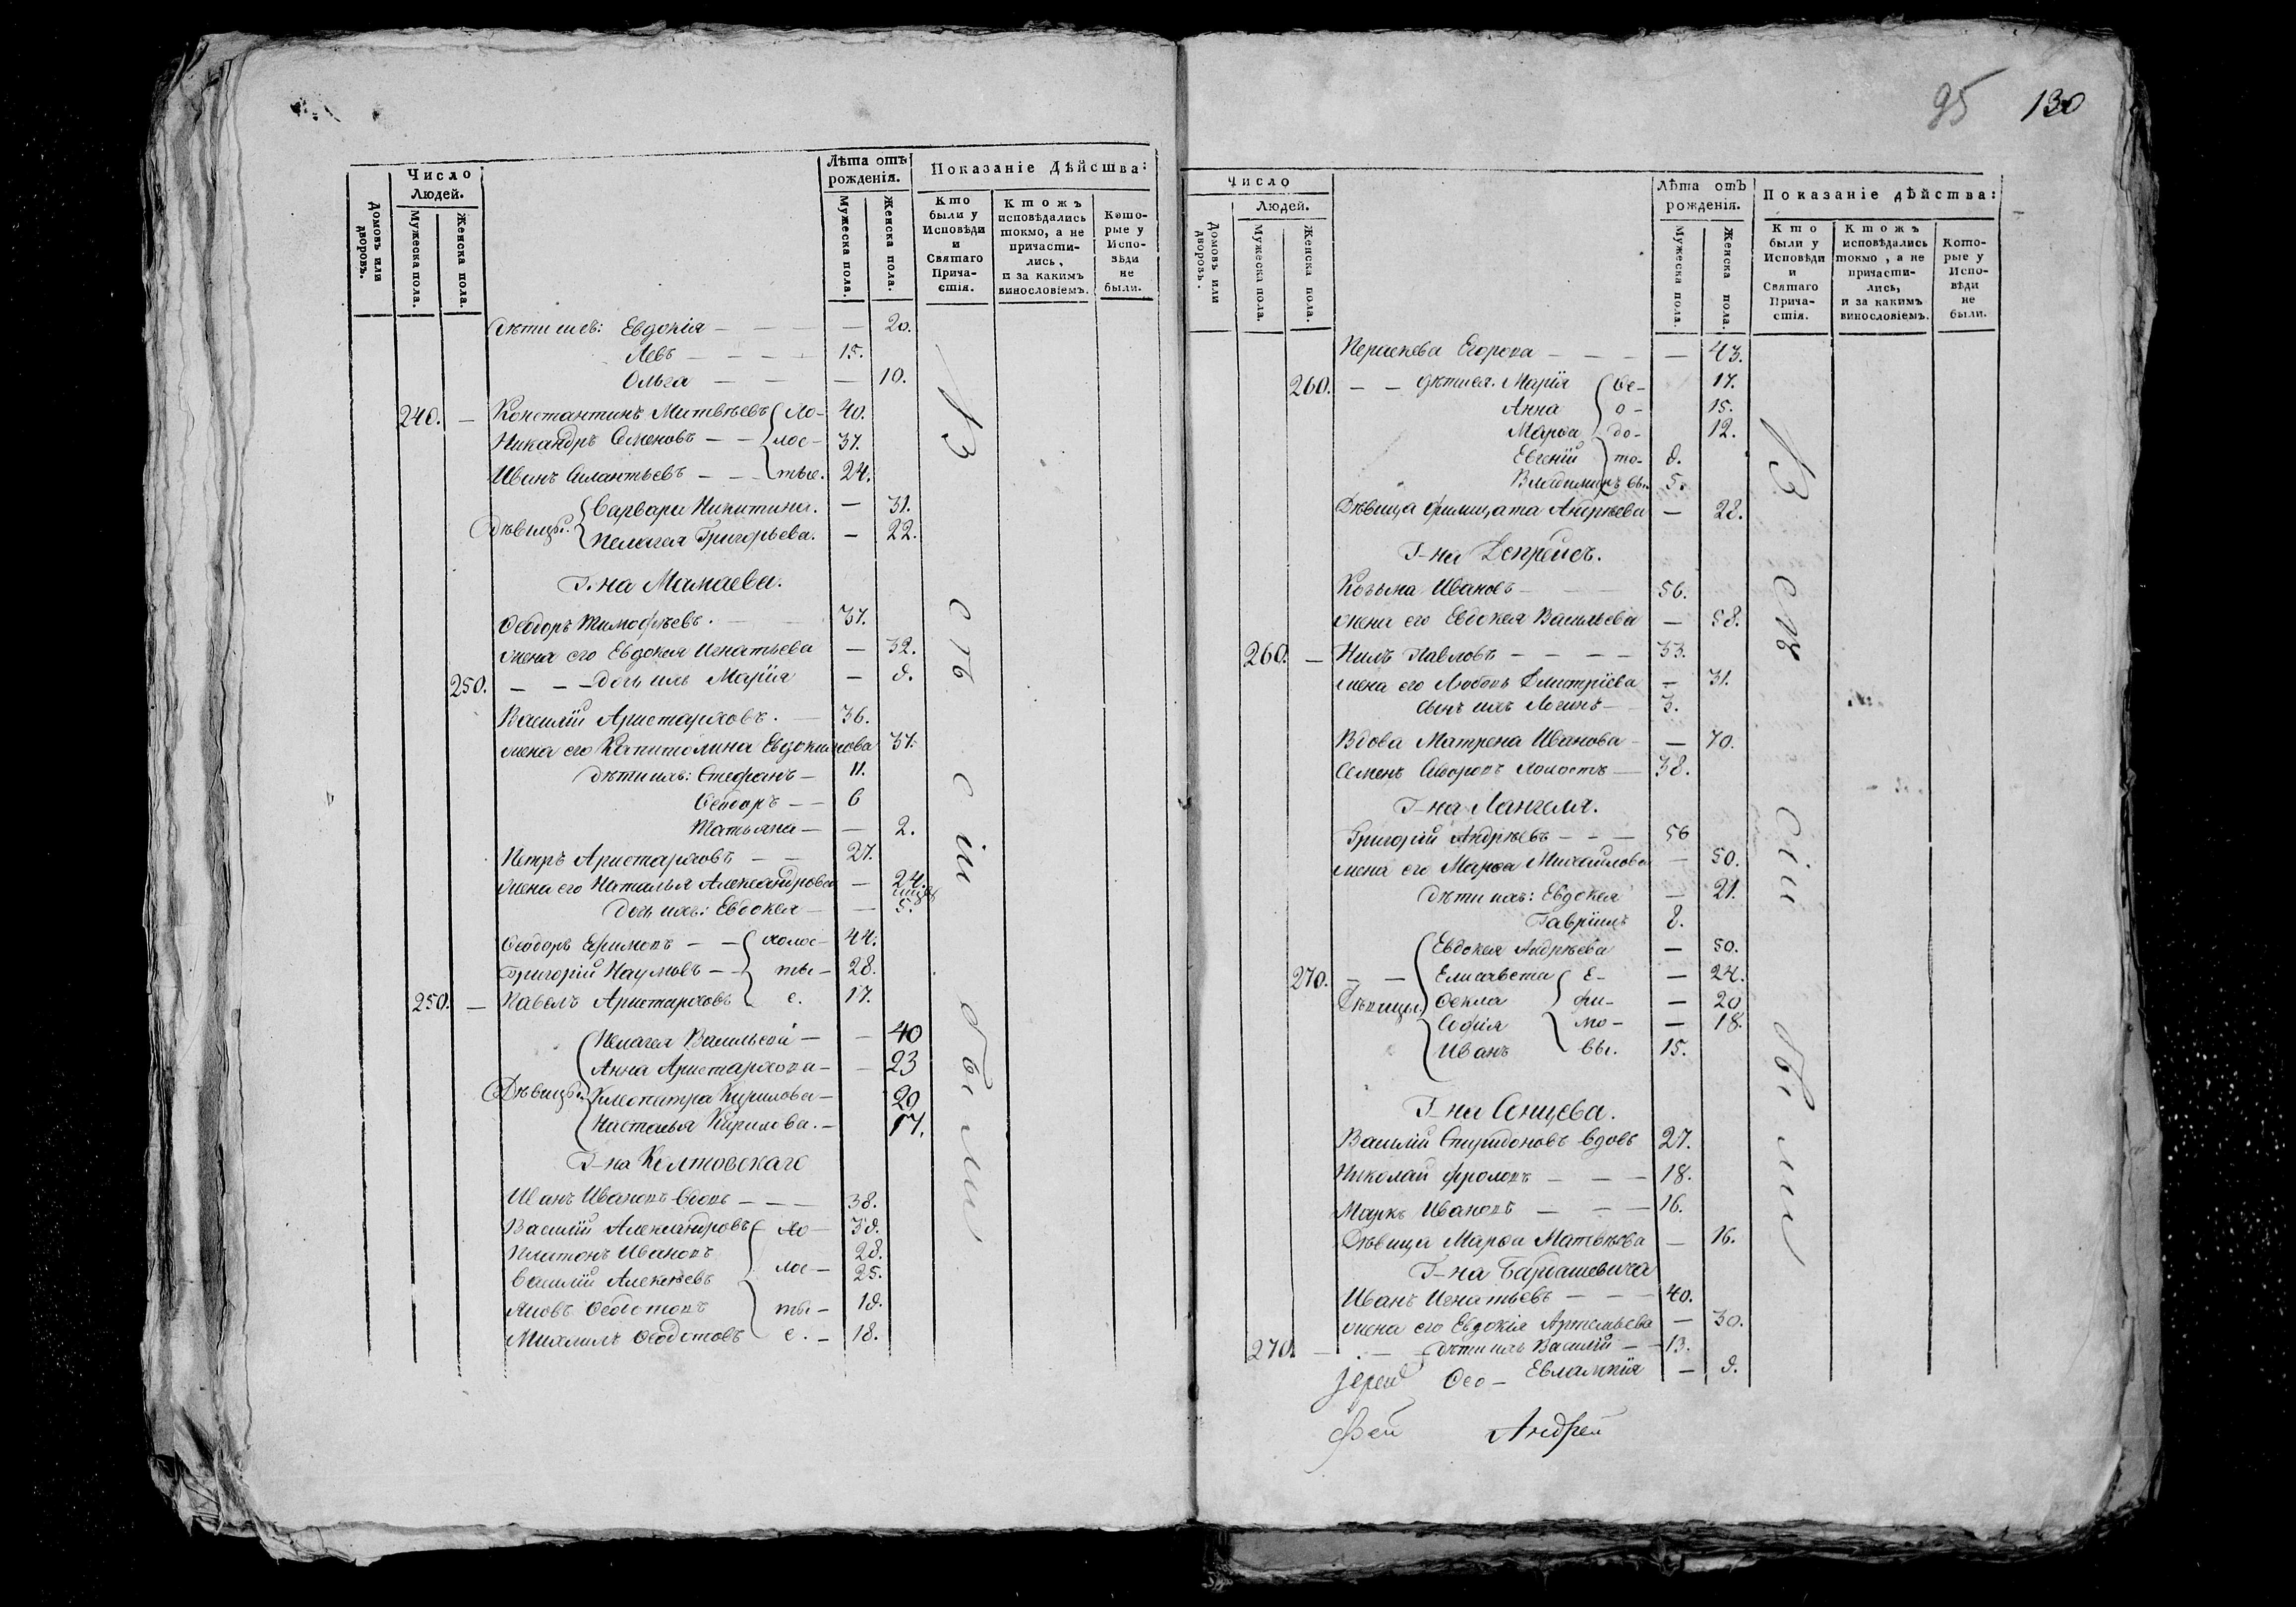 Число
Людей.
Лѣта отъ
рожденія.
Показаніе Дѣйства:
Домовъ или
дворовъ.
Мужеска пола.
Женска пола.
Мужеска пола.
Женска пола.
Кто
были у
Исповѣди
и
Святаго
Прича-
стія.
Ктожъ
исповѣдались
токмо, а не
причасти-
лись,
и за какимъ
винословіемъ.
Кото-
рые у
Испо-
вѣди
не
были.
Дѣти ихъ: Евдокія — — — — 20.
Левъ — — — — 15.
Ольга — — — 10.
240. — Константинъ Матвѣевъ хо- 40.
Никандръ Семеновъ — — лос- 37.
Иванъ Силантьевъ — — тые. 24.
Дѣвицы: Варвара Никитина. — 31.
Пелагея Григорьева. — 22.
Г-на Мамаева.
Ѳеодоръ Тимофѣевъ. 37.
жена его Евдокея Игнатьева — 32.
250. — — — дочь ихъ Марія — 8.
Василій Аристарховъ. — 36.
жена его Капитолина Евдокимова 37.
Дѣти ихъ: Стефанъ — 11.
Ѳеодоръ — — 6
Татьяна — — 2.
Петръ Аристарховъ — — 27.
жена его Наталья Александрова — 24.
Дочь ихъ: Евдокея — — 5.
Ѳеодоръ Ефимовъ — — холос- 44.
Григорій Наумовъ — — ты- 28.
250. — Павелъ Аристарховъ е. 17.
Пелагея Васильева — — 40
Анна Аристархова — — 23
Дѣвицы: Клеопатра Кирилова — 20
Настасья Кирилова. — 17.
Иванъ Ивановъ вдовъ — — — 38.
Василій Александровъ хо — 38.
Платонъ Ивановъ 28.
Василій Алексѣевъ лос — 25.
Яковъ Ѳеодотовъ ты — 18.
Михаилъ Ѳеодотовъ е. — 18.
Въ сѣ сіи были
95 130
Число
Людей.
Лѣта отъ
рожденія.
Показаніе дѣйства:
Домовъ или
дворовъ.
Мужеска пола.
Женска пола.
Мужеска пола.
Женска пола.
Кто
были у
Исповѣди
и
Святаго
Прича-
стія.
Ктожъ
исповѣдались
токмо, а не
причасти-
лись,
и за какимъ
винословіемъ.
Кото-
рые у
Испо-
вѣди
не
были.
Параскева Егорова — — — — 43.
260. — — дѣти ея. Марія Ѳе- 17.
Анна о- 15.
Марѳа до- 12.
Евгеній то- 8.
Владиміръ вы. 5.
Дѣвица Филицата Андрѣева — 28.
Козьма Ивановъ — 56.
жена его Евдокея Васильева — 58.
260. — Нилъ Павловъ — — — — 33.
жена его Любовь Дмитріева — 31.
сынъ ихъ Логинъ — 3.
Вдова Матрена Иванова — — 70.
Семенъ Сидоровъ холостъ — 38.
Г-на Лангеля.
Григорій Андрѣевъ — — — 56
жена его Марѳа Михайлова — 50.
Дѣти ихъ: Евдокея — 21.
Гавріилъ 8.
Евдокея Андрѣева — 50.
270. — — Елисавета Е- — 24.
Дѣвицы: Ѳекла фи- — 20
Софія мо- — 18.
Иванъ вы. 15.
Г-на Сенцева.
Василій Спиридоновъ вдовъ 27.
Николай Фроловъ — — — 18.
Маркъ Ивановъ — — — 16.
Дѣвица Марѳа Матвѣева — 16.
Иванъ Игнатьевъ — — — 40.
жена его Евдокія Артемьева — 30.
270. — — — Дѣти ихъ Василій — — 13.
Евлампія — 8.
Въ сѣ сіи были
Іерей Ѳео-
Андрей